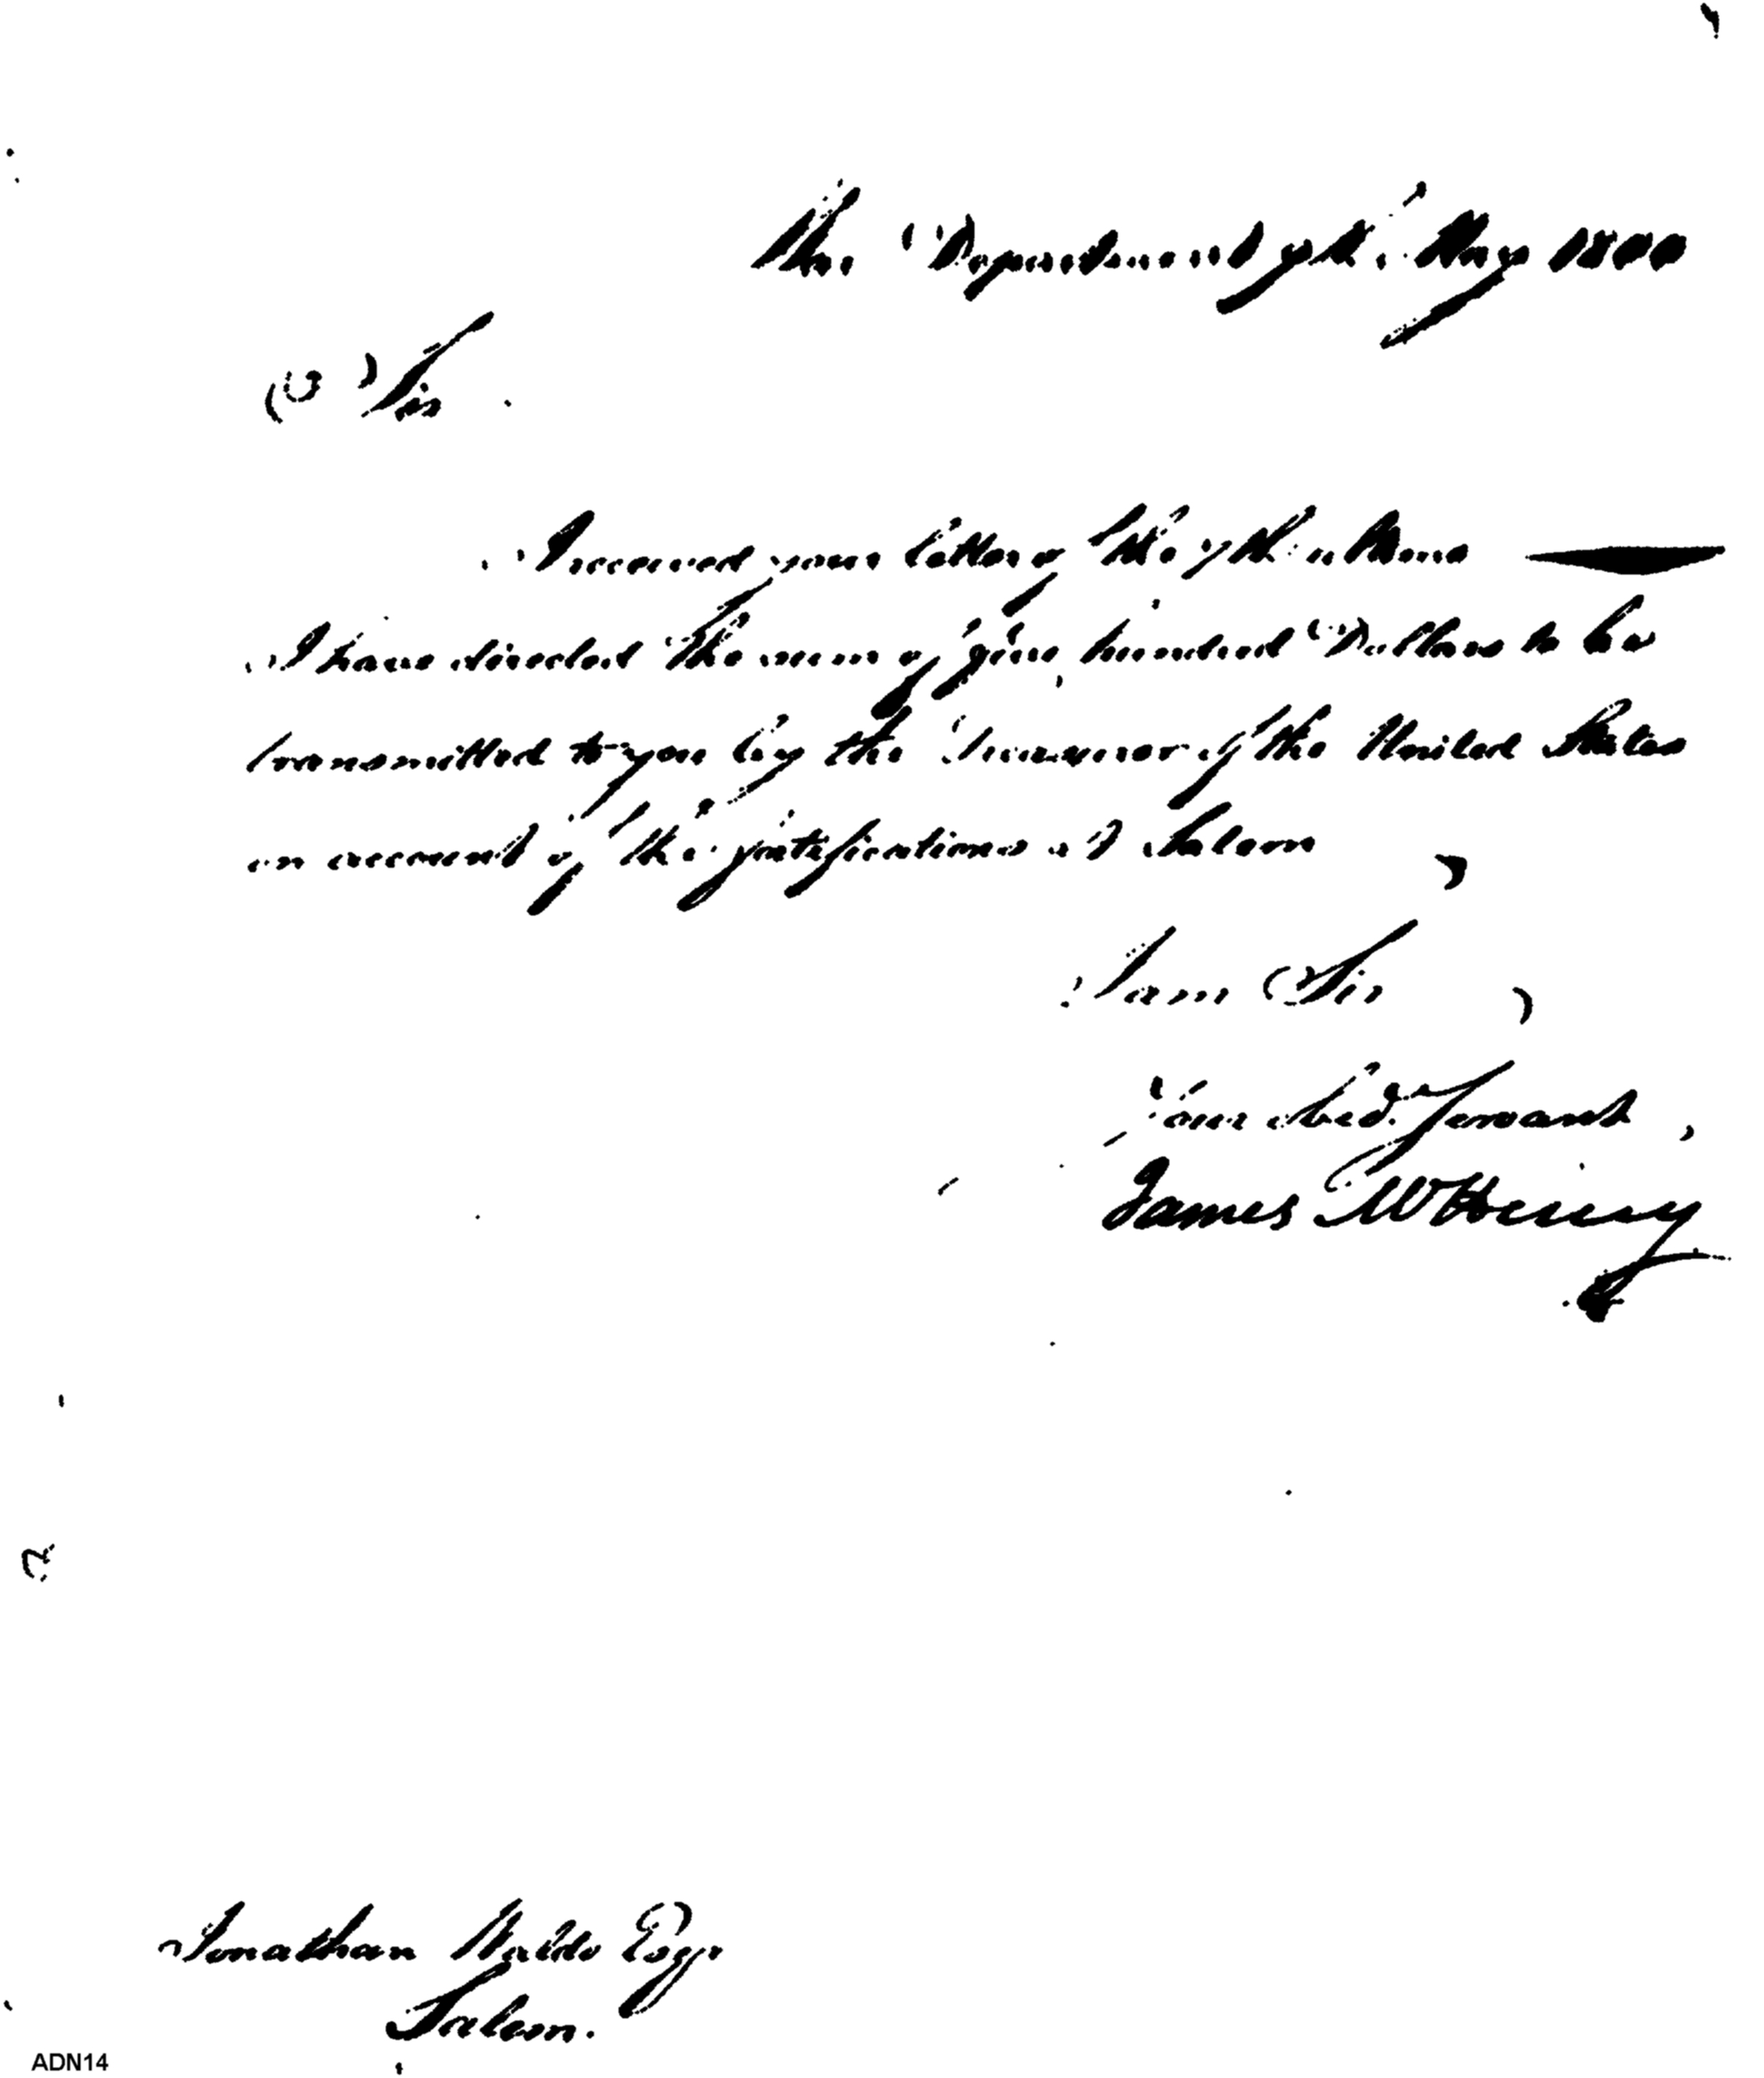 War Department 9th May 1800
Sir
I received your letter of the 9th ultimo
I have directed the sum of five hundred Dollars to be
transmitted to you by the Treasurer of the United States
on account of the fortifications at Salem
I am Sir
your obed. Servant,
James McHenry
Jonathan Waldo Esqr
Salem.
ADN14